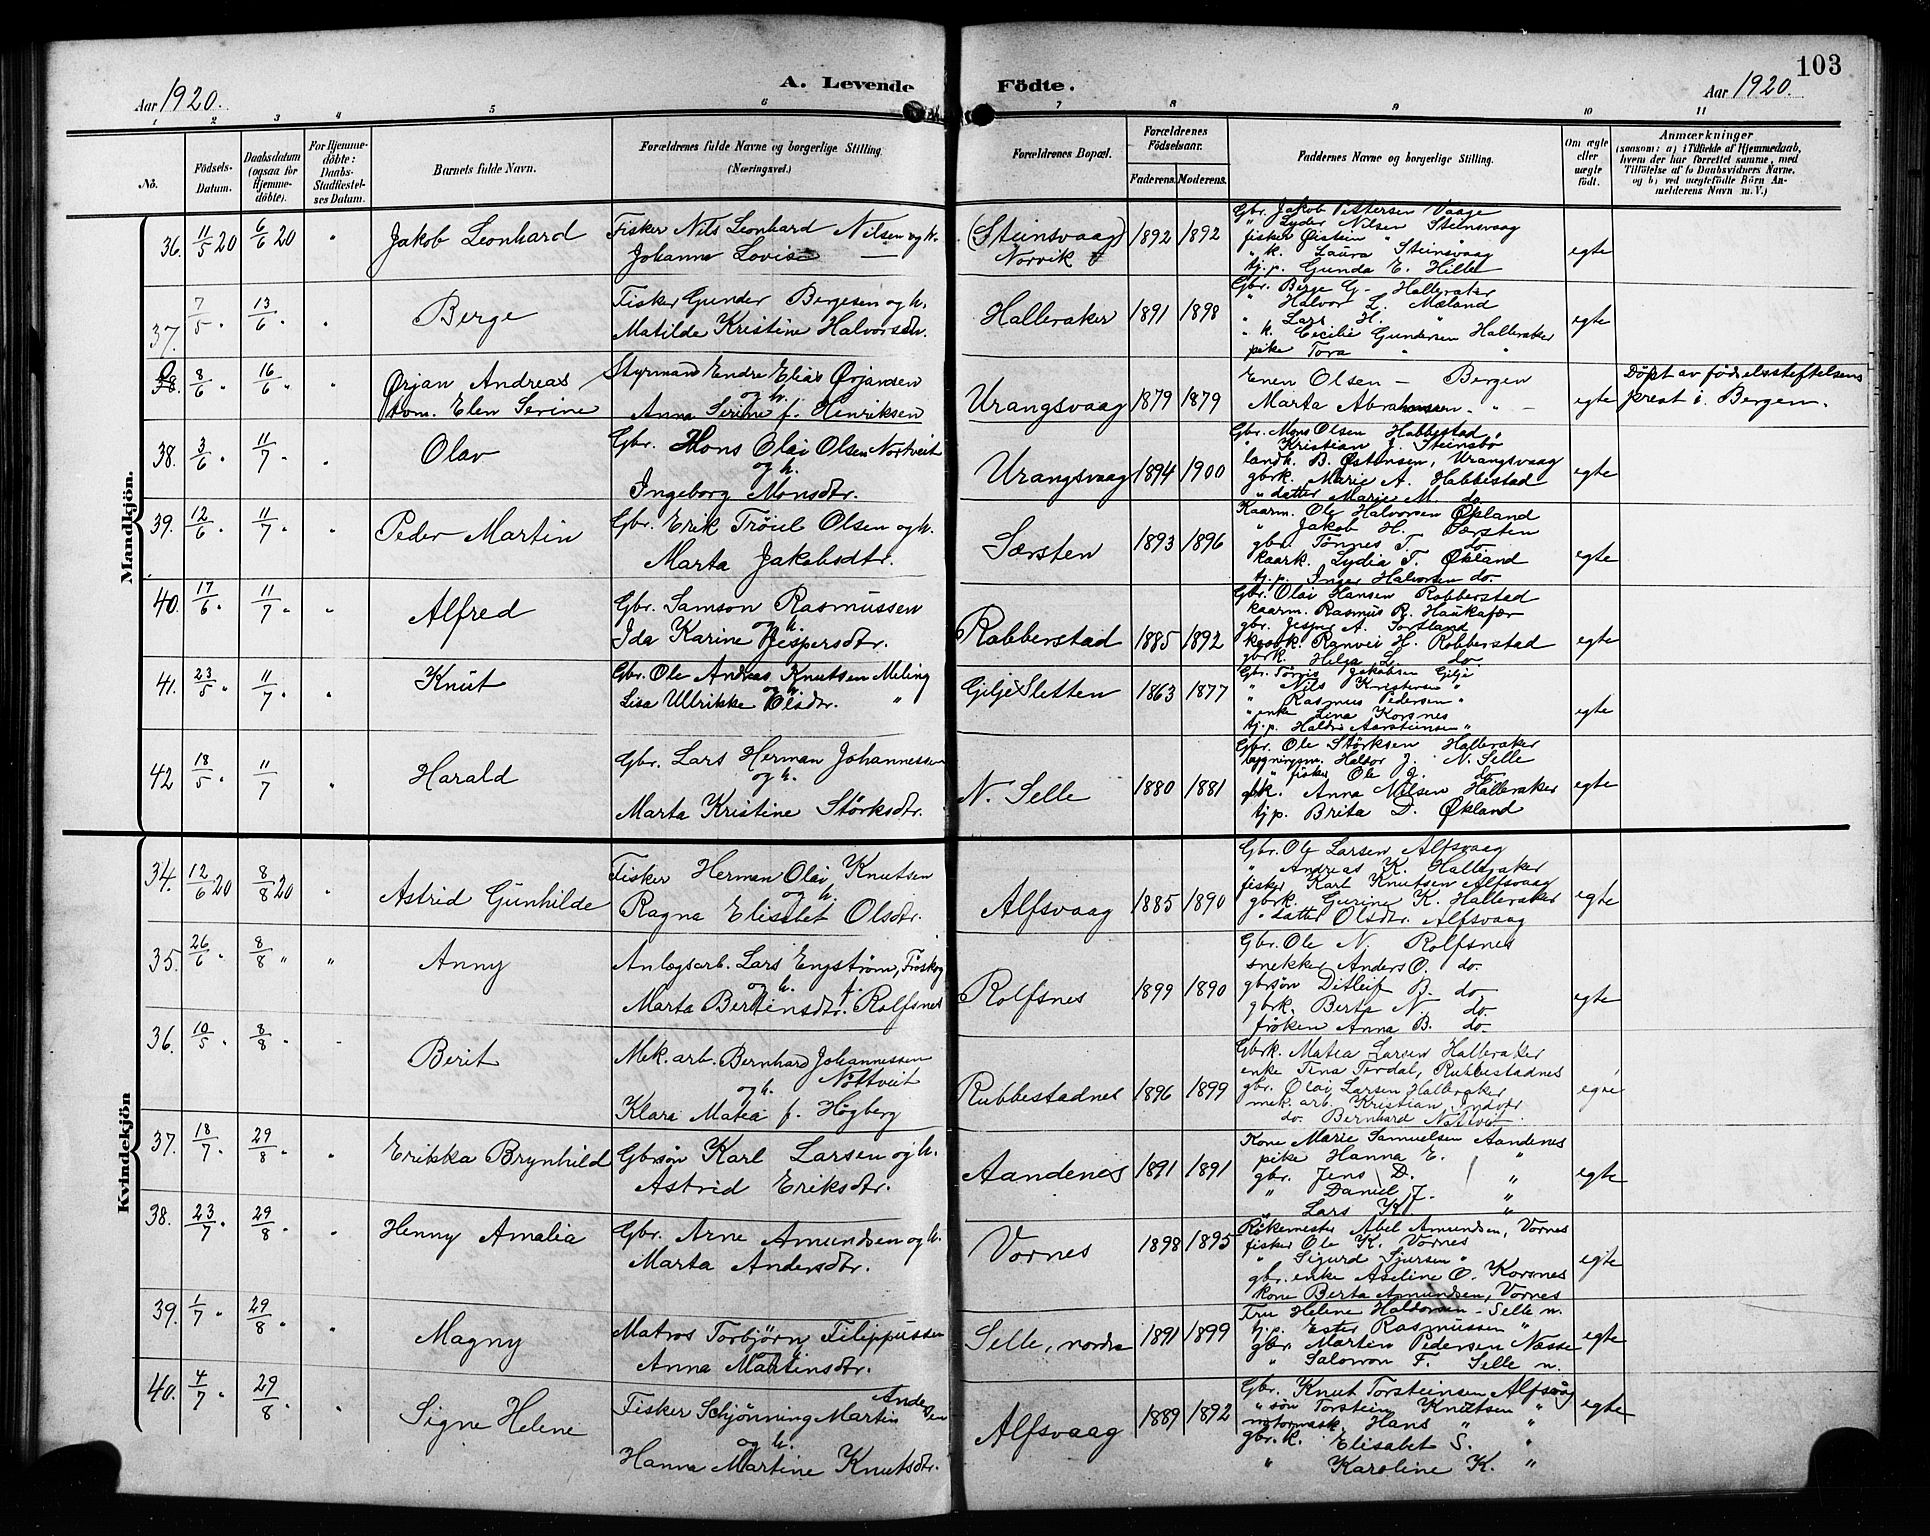 103
Aar 1920.
A. Levende Födte.
Aar 1920.
1 2 3 4 5 6 7 8 9 10 11
No.
Födsels-Datum.
Daabsdatum (ogsaa for Hjemme-döbte).
For Hjemme-döbte: Daabs-Stadfæstel-ses Datum.
Barnets fulde Navn.
Forældrenes fulde Navne og borgerlige Stilling. (Næringsvei.)
Forældrenes Bopæl.
Forældrenes Födselsaar.
Faderens. Moderens.
Faddernes Navne og borgerlige Stilling.
Om ægte eller uægte födt.
Anmærkninger
(saasom: a) i Tilfælde af Hjemmedaab, hvem der har forrettet samme, med Tilföielse af to Daabsvidners Navne, og b) ved uægtefödte Börn An-melderens Navn m. V.)
Mandkjön.
36. 11/5 20 6/6 20 " Jakob Leonhard
Fisker Nils Leonhard Nilsen og h.
Johanna Lovise —
(Steinsvaag) Norvik 1892 1892
Gbr. Jakob Pettersen Vaage
" Lyder Nilsen Steinsvaag
fisker Øistein " "
" k. Laura Steinsvaag
tj.p. Gunda E. Hille
egte
37. 7/5 " 13/6 " " Berge
Fisker Gunder Bergesen og h.
Matilde Kristine Halvorsdtr.
Halleraker 1891 1898
Gbr. Berge G. Halleraker
" Halvor L. Mæland
" Lars H. "
" k. Cecilie Gundersen Halleraker
pike Tora " "
egte
38. 8/6 " 16/6 " Ørjan Andreas
tom. Elen Serine
Styrmand Endre Elias Ørjansen
og h.
Anna Serine f. Henriksen
Urangsvaag 1879 1879
Enen Olsen — Bergen
Marta Abrahamsen. " —
egte
Döpt av födselsstiftelsens
prest i Bergen.
38. 3/6 " 11/7 " " Olav
Gbr. Mons Olai Olsen Nortveit
og h.
Ingeborg Monsdtr.
Urangsvaag 1894 1900
Gbr. Mons Olsen Habbestad
" Kristian J. Steinsbø
landh. B. Østensen, Urangsvaag
gbrk. Marie A. Habbestad
" datter Marie M. do.
egte
39. 12/6 " 11/7 " " Peder Martin
Gbr. Erik Tröiel Olsen og h.
Marta Jakobsdtr.
Særsten 1893 1896
Kaarm. Ole Halvorsen Økland
" Jakob H. Særsten
gbr. Tönnes T. do.
kaark. Lydia T. Økland
tj.p. Inger Halvorsen do.
egte
40. 17/6 " 11/7 " " Alfred
Gbr. Samson Rasmussen
og h.
Ida Karine Jespersdtr.
Robberstad 1885 1892
Gbr. Olai Hansen Robberstad
kaarm. Rasmus R. Haukafær
gbr. Jesper A. Tortland
kaark. Ranvei H. Robberstad
gbrk. Helga L. do
egte
41. 23/5 " 11/7 " " Knut
Gbr. Ole Andreas Knutsen Meling
og h.
Lisa Ullrikke Olsdtr. "
Gilje Sletten 1863 1877
Gbr. Törris Jakobsen Gilje
" Nils Kristensen "
" Rasmus Pedersen "
" enke Lina Korsnes
tj.p. Haldis Aarsteinsen "
egte
42 18/5 " 11/7 " Harald
Gbr. Lars Herman Johannessen
og h.
Marta Kristine Störksdtr.
N. Selle 1880 1881
Gbr. Ole Störksen Halleraker
bygningsm. Haldor J. N. Selle
" fisker Ole J. do
gbk. Anna Nilsen Halleraker
tj.p. Brita D. Økland
egte
Kvindekjön
34. 12/6 20 8/8 20 " Astrid Gunhilde
Fisker Herman Olai Knutsen
og h.
Ragna Elisabet Olsdtr.
Alfsvaag 1885 1890
Gbr. Ole Larsen Alfsvaag
" Andreas K. Halleraker
fisker Karl Knutsen Alfsvaag
gbrk. Gurine K. Halleraker
" datter Olsdtr. Alfsvaag
egte
35. 26/6 " 8/8 " " Anny
Anlægsarb. Lars Engström,
og h.
Marta Bertinsdtr. Rolfsnes
Rolfsnes 1899 1890
Gbr. Ole N. Rolfsnes
snekker Anders O. do.
gbrsön Ditleif B. do
gbrk. Berta N. do.
fröken Anna B. do.
egte
36. 10/5 " 8/8 " Berit
Mek. arb. Bernhard Johannessen
og h. Nottveit
Klara Matea f. Högberg
Rubbestadnes 1896 1899
Gbrk. Matea Larsen Halleraker
enke Tina Terdal, Rubbestadnes
gbr. Olai Larsen Halleraker
mek. arb. Kristian
do. Bernhard
egte
37. 18/7 " 29/8 " " Erikka Brynhild
Gbrsön Karl Larsen og h.
Astrid Eriksdtr.
Aandenes 1891 1891
Kone Marie Samuelsen Aandenes
pike Hanna E. "
gbr. Jens D. "
" Daniel J. "
" Lars K. "
egte
38. 23/7 " 29/8 " " Henny Amalia
Gbr. Arne Amundsen og h.
Marta Andersdtr.
Vornes 1898 1895
Rökemester Abel Amundsen, Vornes
fisker Ole K. Vornes
" Sigurd Sjursen "
gbr. enke Aseline O. Korsnes
kone Berta Amundsen, Vornes
egte
39. 1/7 " 29/8 " " Magny
Matros Torbjörn Filippussen
og h.
Anna Martinsdtr.
Selle, nordre 1891 1899
Fru Helene Haldorsen - Selle n.
tj.p. Ester Rasmussen "
gbr. Martin Pedersen Næsse
" Salomon F. Selle n.
egte
40. 4/7 " 29/8 " " Signe Helene
Fisker Schjönning Martin Andersen
og h.
Hanna Martine Knutsdtr.
Alfsvaag 1889 1892
Gbr. Knut Torsteinsen Alfsvåg
" sön Torstein Knutsen "
motormask. Hans " "
gbr. k. Elisabet S. "
" Karoline K. "
egte